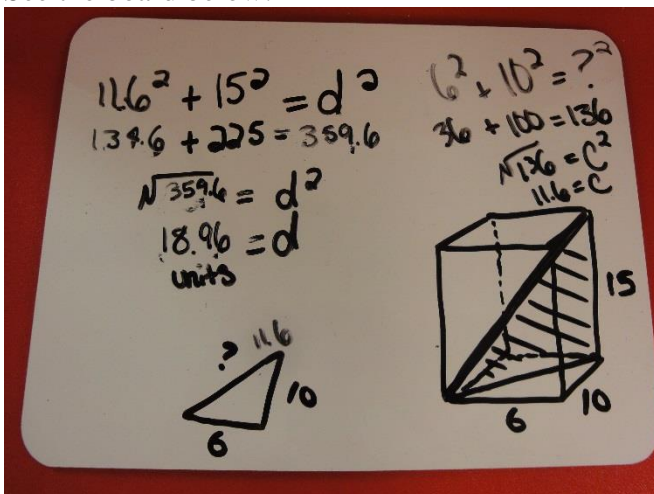 11.6² + 15² = d²
134.6 + 225 = 359.6
√359.6 = d²
18.96 = d
units
? 11.6
10
6
6² + 10² = ?²
36 + 100 = 136
√136 = C²
11.6 = C
15
10
6